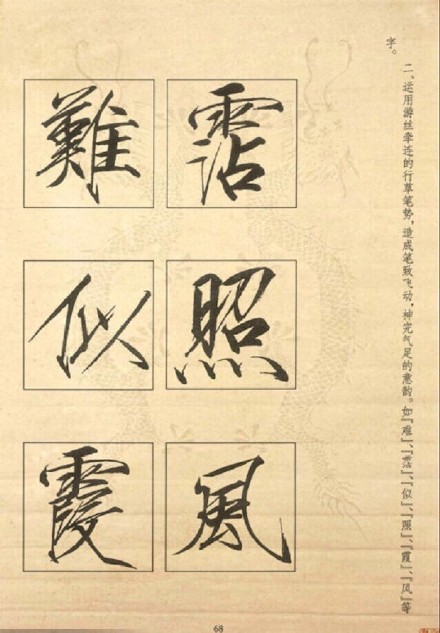 二、运用游丝牵连的行草笔势,造成笔致飞动,神完气足的意韵。如『难』、『霑』、『似』、『照』、『霞』、『风』等
字。
霑
照
風
難
似
霞
68